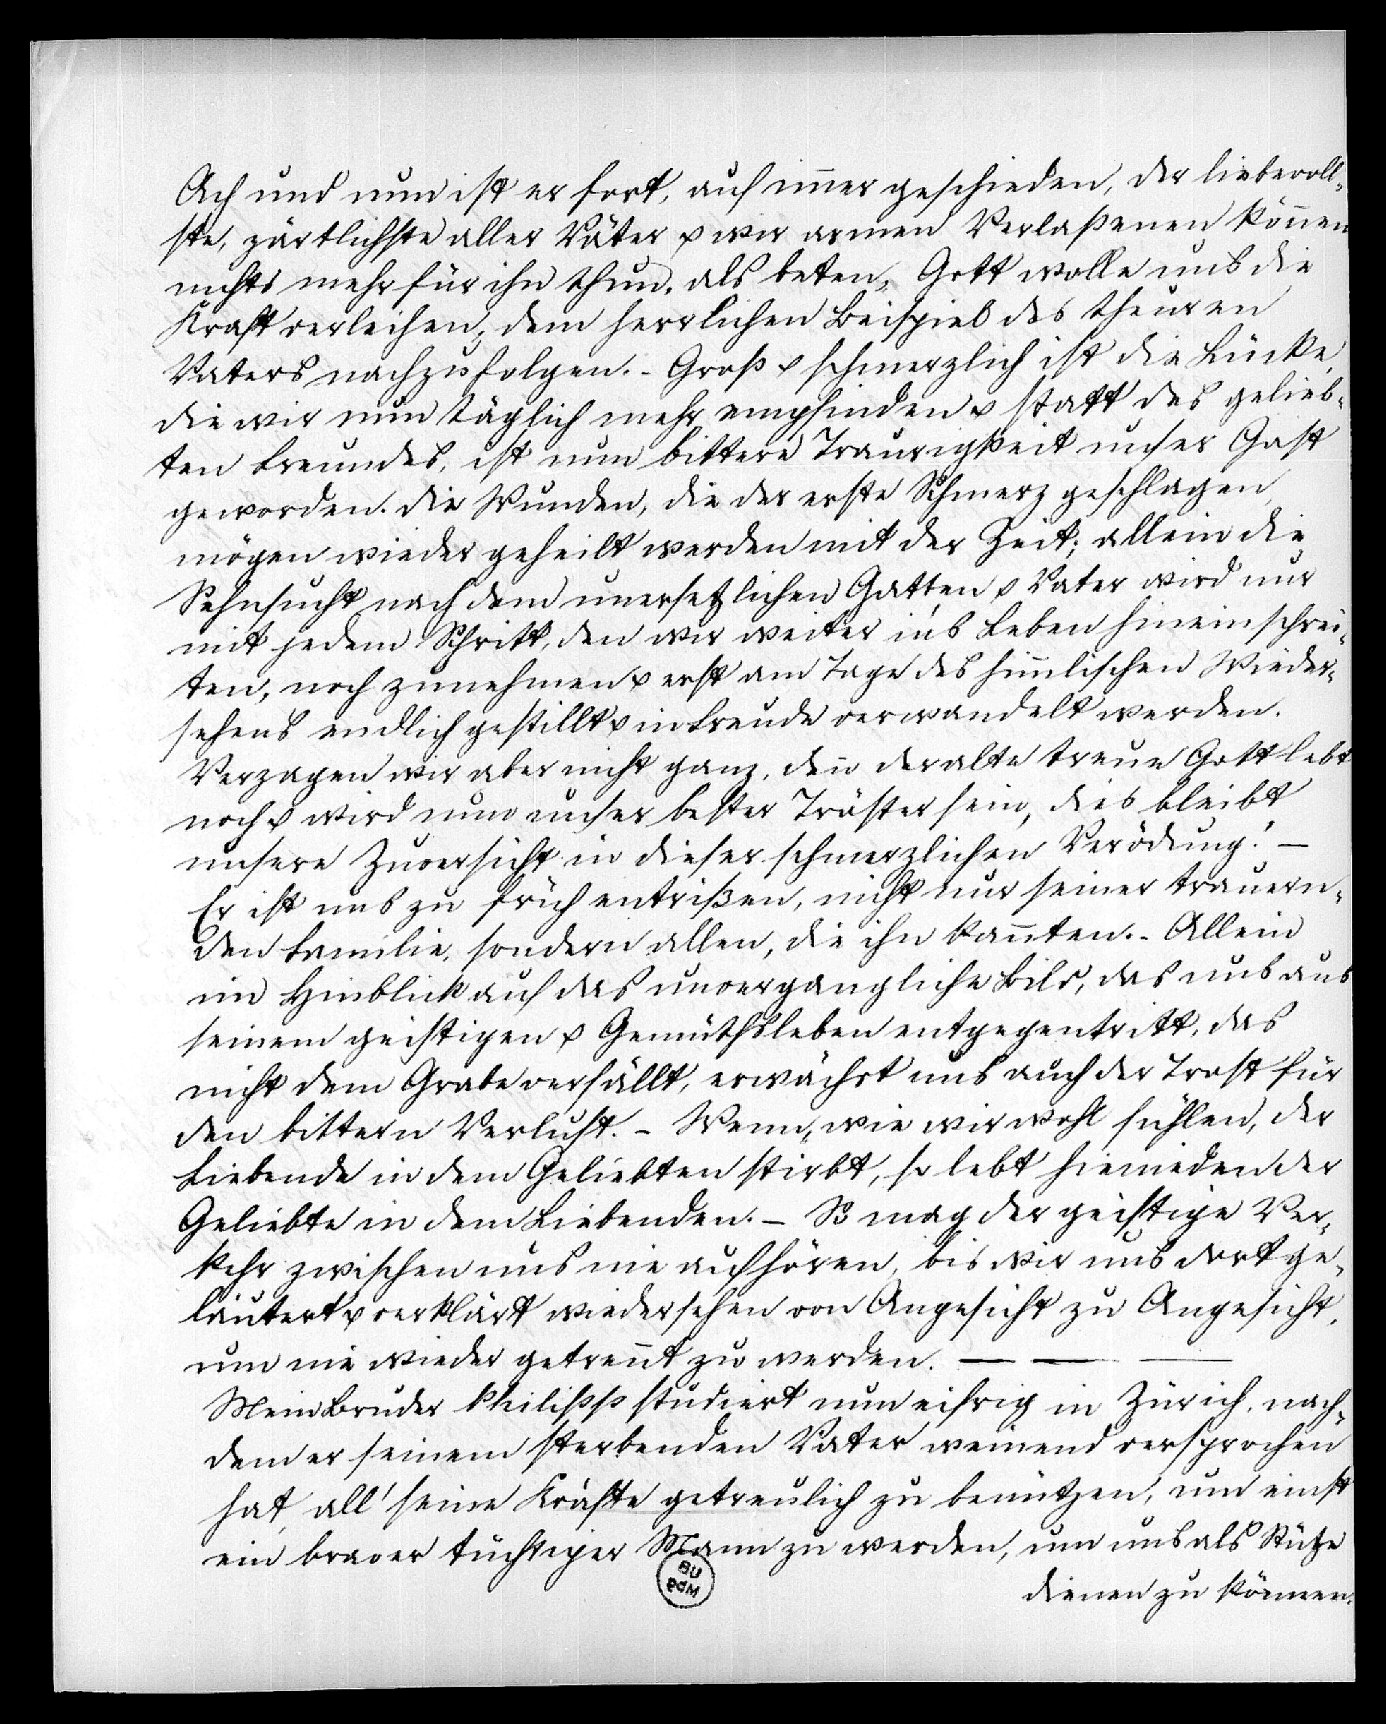 Ach und nun ist er fort, auf im̄er geschieden, der liebevoll-
ste, zärtlichste aller Väter & wir armen Verlaßenen kön̄en
nichts mehr für ihn thun, als beten, Gott wolle uns die
Kraft verleihen, dem herrlichen Beispiel des theuren
Vaters nachzufolgen. - Groß & schmerzlich ist die Lücke,
die wir nun täglich mehr empfinden & statt des gelieb-
ten Freundes, ist nun bittere Traurigkeit unser Gast
geworden. Die Wunden, die der erste Schmerz geschlagen
mögen wieder geheilt werden mit der Zeit; allein die
Sehnsucht nach dem unersetzlichen Gatten & Vater wird nur
mit jedem Schritt, den wir weiter in's Leben hineinschrei-
ten, noch zunehmen & erst am Tage des him̄lischen Wieder-
sehens endlich gestillt & in Freude verwandelt werden.
Verzagen wir aber nicht ganz, den̄ der alte treue Gott lebt
noch & wird nun unser bester Tröster sein, dies bleibt
unsere Zuversicht in dieser schmerzlichen Verödung! —
Er ist uns zu früh entrißen, nicht nur seiner trauern-
den Familie, sondern allen, die ihn kan̄ten. - Allein
im Hinblick auf das unvergangliche Bild, das uns aus
seinem geistigen & Gemüthsleben entgegentritt, das
nicht dem Grabe verfällt, erwächst uns auch der Trost für
den bittern Verlust. - Wenn, wie wir wohl fühlen, der
Liebende in dem Geliebten stirbt, so lebt hienieden der
Geliebte in dem Liebenden. - So mag der geistige Ver-
kehr zwischen uns nie aufhören, bis wir uns dort ge-
läutert & verklärt wiedersehen von Angesicht zu Angesicht,
um nie wieder getren̄t zu werden. — — —
Mein Bruder Philipp studiert nun eifrig in Zürich, nach-
dem er seinem sterbenden Vater weinend versprochen
hat, all' seine Kräfte getreulich zu benützen, um einst
ein braver tüchtiger Mann zu werden, um uns als Stütze
dienen zu können.